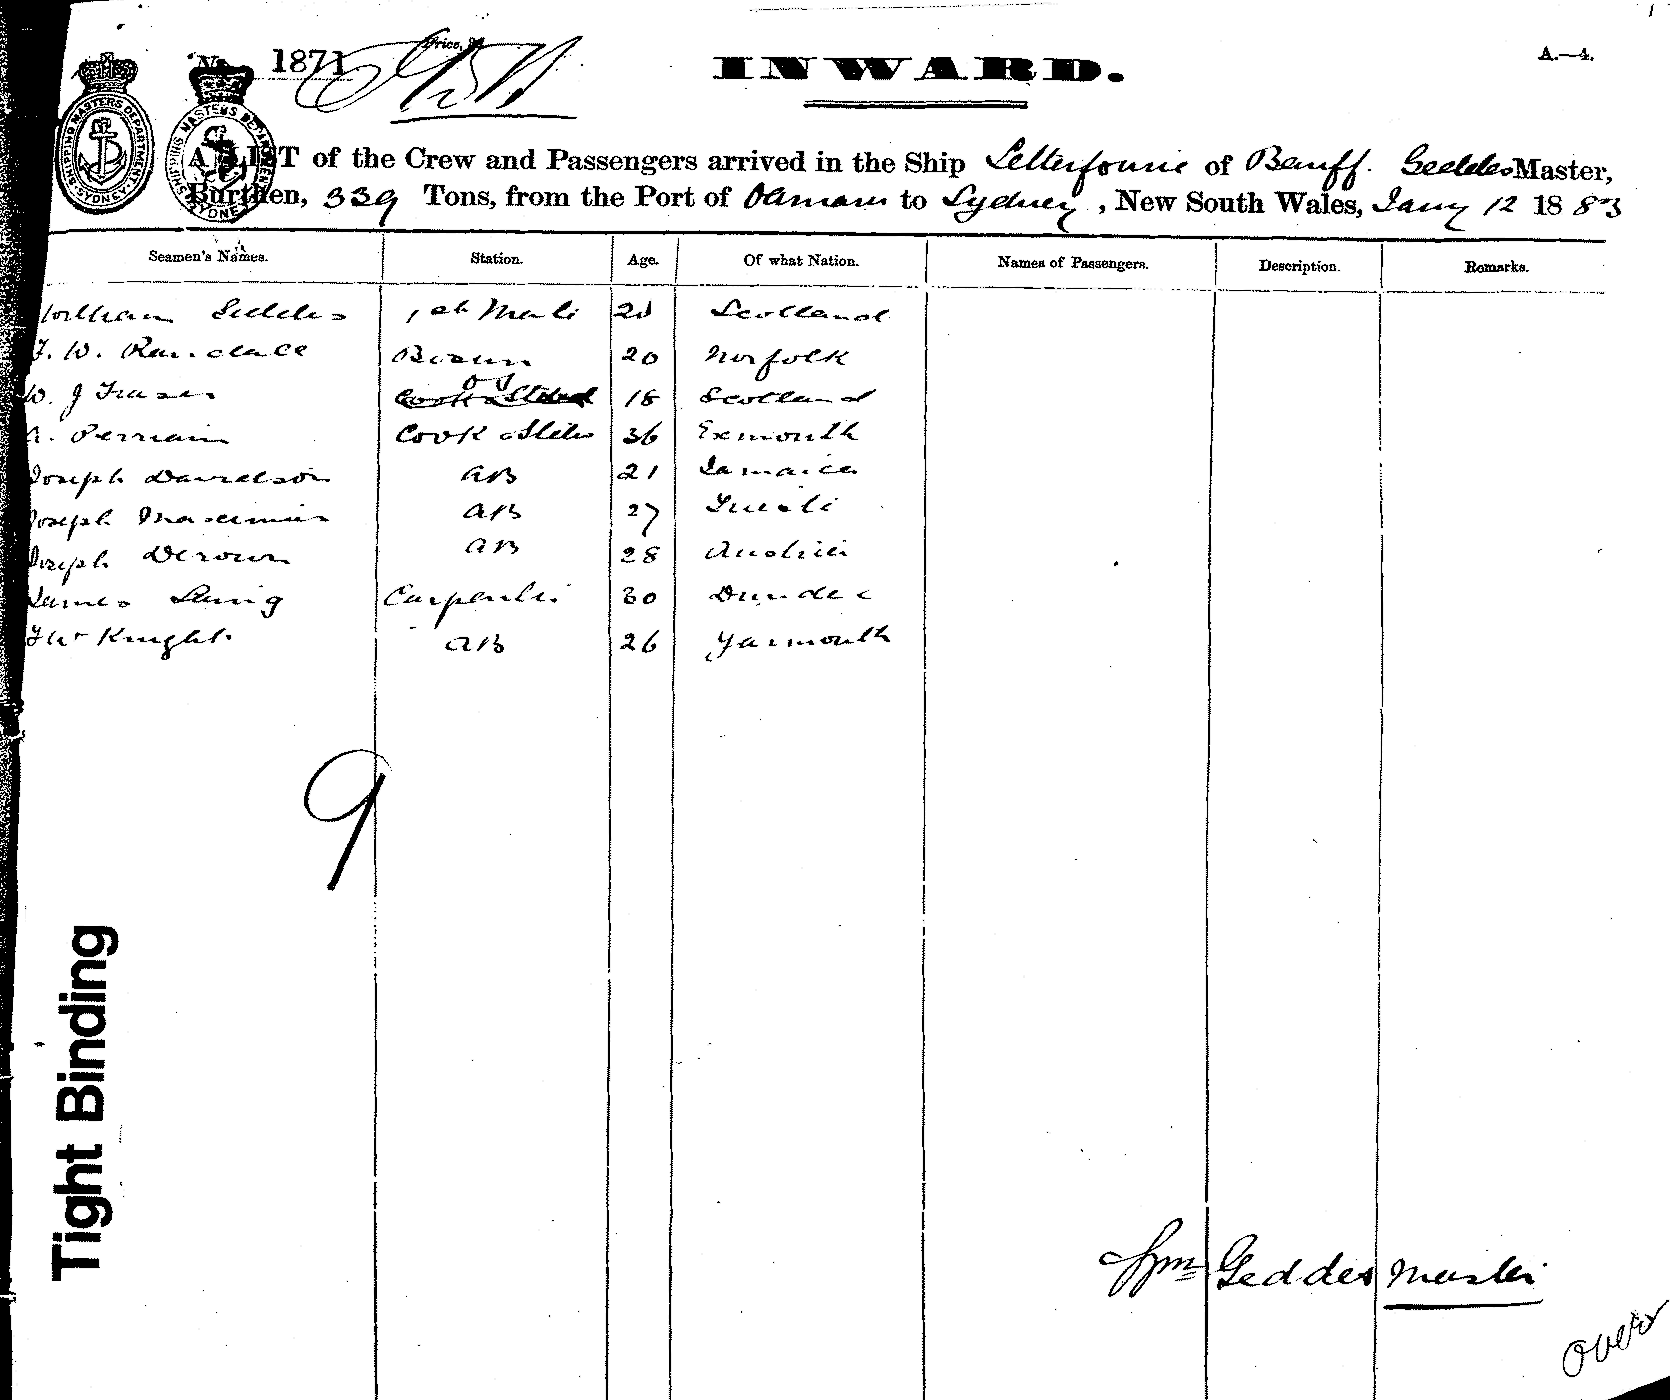 No. 1871
Price, 
INWARD.
A.—4.
SHIPPING MASTERS DEPARTMENT SYDNEY
SHIPPING MASTERS DEPARTMENT SYDNEY
A LIST of the Crew and Passengers arrived in the Ship Letterfourie of Banff. Geddes Master,
Burthen, 339 Tons, from the Port of Oamaru to Sydney, New South Wales, Jany 12 1883
Seamen's Names. Station. Age. Of what Nation. Names of Passengers. Description. Remarks.
William Geddes 1st Mate Scotland
Bosun 20 Norfolk
W. J Fraser Cook & Steward OS 18 Scotland
A. Perriam Cook & Stew 36 Exmouth
Joseph Davidson AB 21 Jamaica
Joseph AB 27
Joseph AB 28 Austria
James Laing Carpenter 30 Dundee
Thos Knight AB 26 Yarmouth
9
Tight Binding
Geddes Master
over